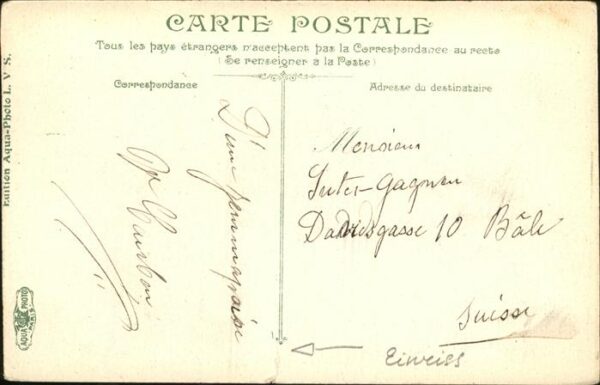 CARTE POSTALE
Tous les pays étrangers n'acceptent pas la Correspondance au recto
(Se renseigner à la Poste)
Correspondance
Adresse du destinataire
D'une
Monsieur
Suter-Gagneu
Davidsgasse 10 Bâle
Suisse
Einreiss
Edition Aqua-Photo L. V. S.
AQUA PHOTO
PARIS